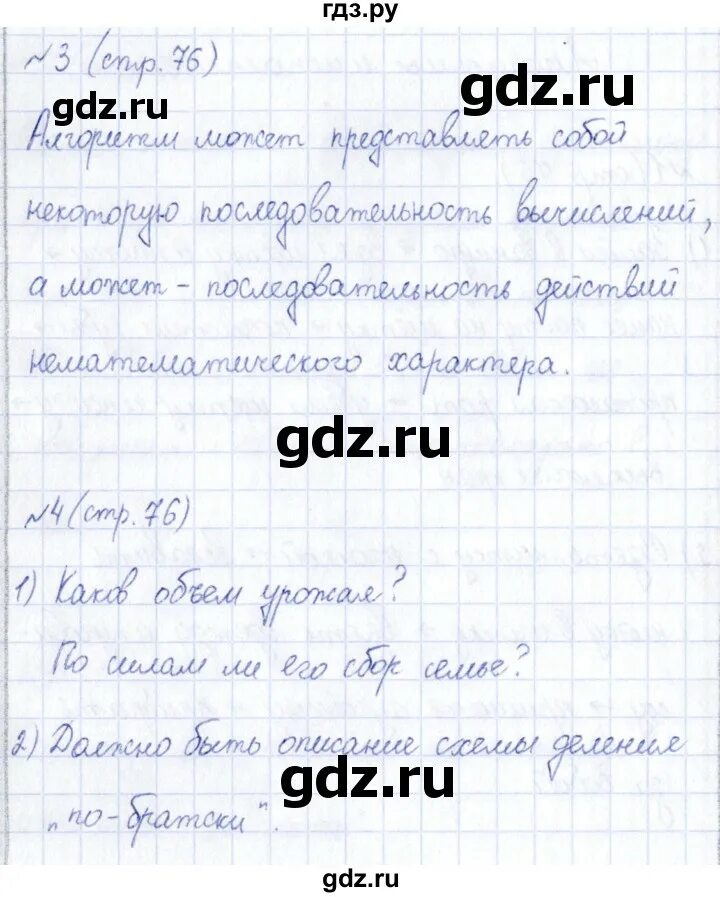 гдз.ру
№3 (стр. 76)
gdz.ru
gdz.ru
Алгоритм может представлять собой
некоторую последовательность вычислений,
а может - последовательность действий
нематематического характера.
gdz.ru
№4 (стр. 76)
1) Каков объем урожая?
По силам ли его сбор семье?
2) Должно быть описание схемы деления
gdz.ru
"по-братски".
gdz.ru